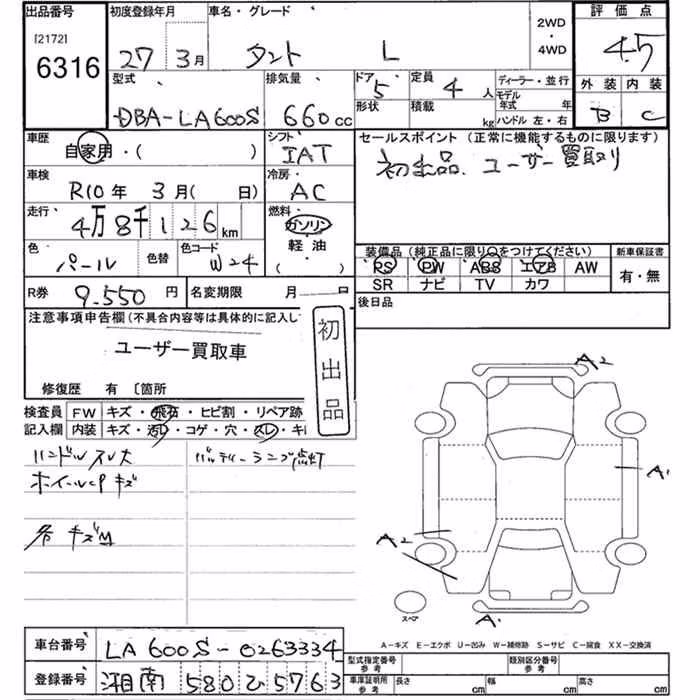 出品番号 初度登録年月 車名・グレード 2WD・4WD 評価点
[2172] 6316 27 3月 タント L 4.5
型式 排気量 ドア 定員 ディーラー・並行 外装 内装
DBA-LA600S 660cc 5 4人 形状 積載 kg モデル年式 年 ハンドル 左・右 B C
車歴 シフト セールスポイント(正常に機能するものに限ります)
自家用・( ) IAT 初出品. ユーザー買取り
車検 冷房
R10年 3月( 日) AC
走行 燃料
4万8千126km ガソリン 軽・油 ( )
色 色替 色コード 装備品(純正品に限り○をつけてください) 新車保証書
パール W24 PS PW ABS エアB AW 有・無
SR ナビ TV カワ
R券 9.550円 名変期限 月 日 後日品
注意事項申告欄(不具合内容等は具体的に記入し
初出品
ユーザー買取車
修復歴 有 〔箇所
検査員記入欄 FW キズ・飛石・ヒビ割・リペア跡
内装 キズ・汚レ・コゲ・穴・スレ・キ
ハンドルスレ大 バッテリーランプ点灯
ホイールCP キズ
各 キズM
A2
A1
A2
A1
スペア
A-キズ E-エクボ U-凹み W-補修跡 S-サビ C-腐食 XX-交換済
車台番号 LA600S-0263334
登録番号 湘南 580 ひ 5763
型式指定番号 参考 類別区分番号 参考
車庫証明用 参考 長さ cm 幅 cm 高さ cm